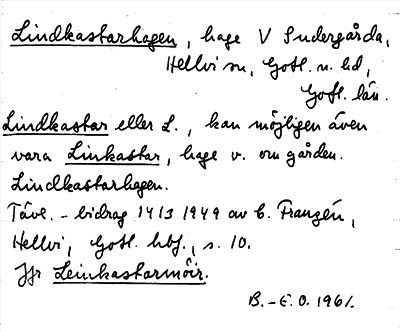 Lindkastarhagen, hage V Sudergårda,
Hellvi sn, Gotl. n. hd,
Gotl. län.
Lindkastar eller L., kan möjligen även
vara Linkastar, hage v. om gården.
Lindkastarhagen.
Tävl.-bidrag 14/3 1949 av G. Franzén,
Hellvi, Gotl. hbf., s. 10.
Jfr Leinkastarmöir.
B.-E. O. 1961.